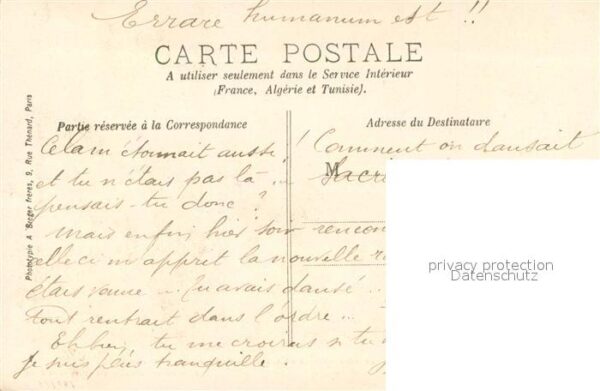 Errare humanum est !!
CARTE POSTALE
A utiliser seulement dans le Service Intérieur
(France, Algérie et Tunisie).
Phototypie A Berger frères, 9, Rue Thénard, Paris
Partie réservée à la Correspondance
Cela m'étonnait aussi !
et tu n'étais pas là ...
pensais-tu donc ?
Mais enfin, hier soir rencon
elle ci m'apprit la nouvelle
étais venue ... Tu avais dansé ..
tout rentrait dans l'ordre ...
Eh bien, tu me croiras si tu
je suis plus tranquille.
Adresse du Destinataire
Comment on dansait
M
privacy protection
Datenschutz